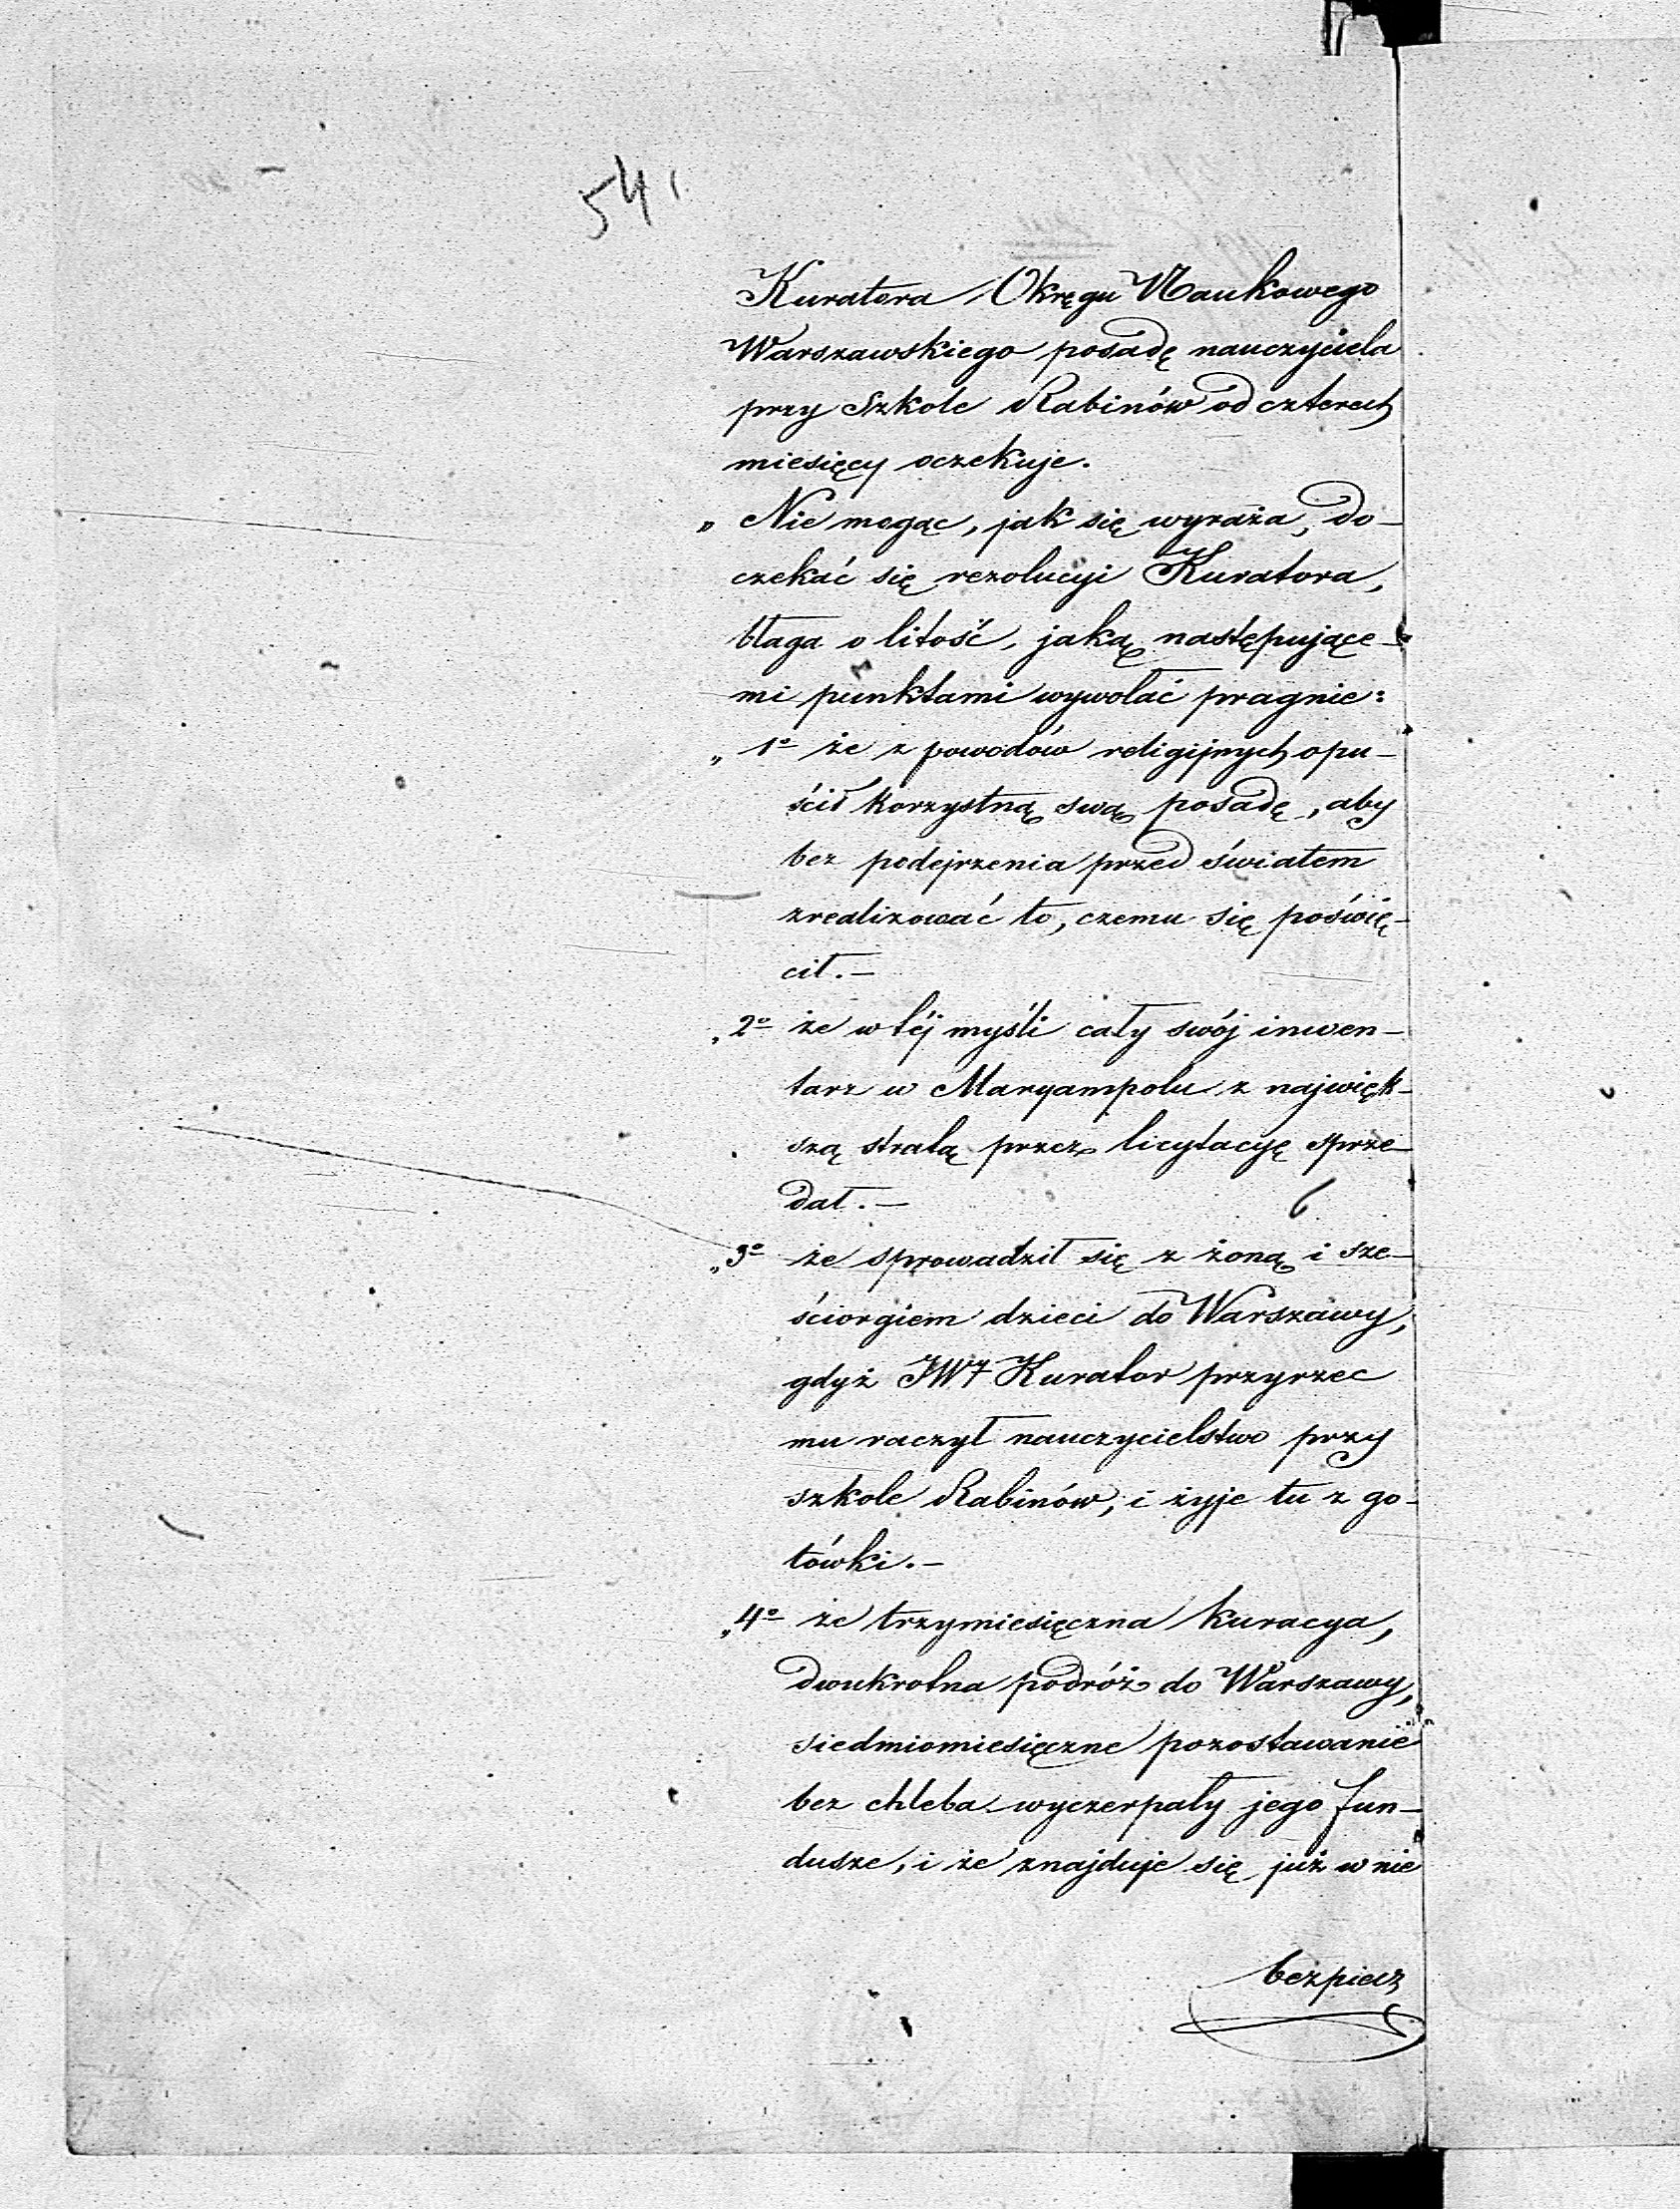 541.
Kuratora Okręgu Naukowego
Warszawskiego posadę nauczyciela
przy Szkole Rabinów od czterech
miesięcy oczekuje.
„ Nie mogąc, jak się wyraża, do-
czekać się rezolucyi Kuratora,
błaga o litość, jaką następujące-
mi punktami wywołać pragnie:
„ 1º że z powodów religijnych opu-
ścił korzystną swą posadę, aby
bez podejrzenia przed światem
zrealizować to, czemu się poświę-
cił.—
„ 2º że w téj myśli cały swój inwen-
tarz w Maryampolu z najwięk-
szą stratą przez licytacyę sprze-
dał.—
„ 3º że sprowadził się z żoną i sze-
ściorgiem dzieci do Warszawy,
gdyż JWy Kurator przyrzec
mu raczył nauczycielstwo przy
szkole Rabinów, i żyje tu z go-
tówki.—
„ 4º że trzymiesięczna kuracya,
dwukrotna podróż do Warszawy,
siedmiomiesięczne pozostawanie
bez chleba wyczerpały jego fun-
dusze, i że znajduje się już w nie
bezpiecz